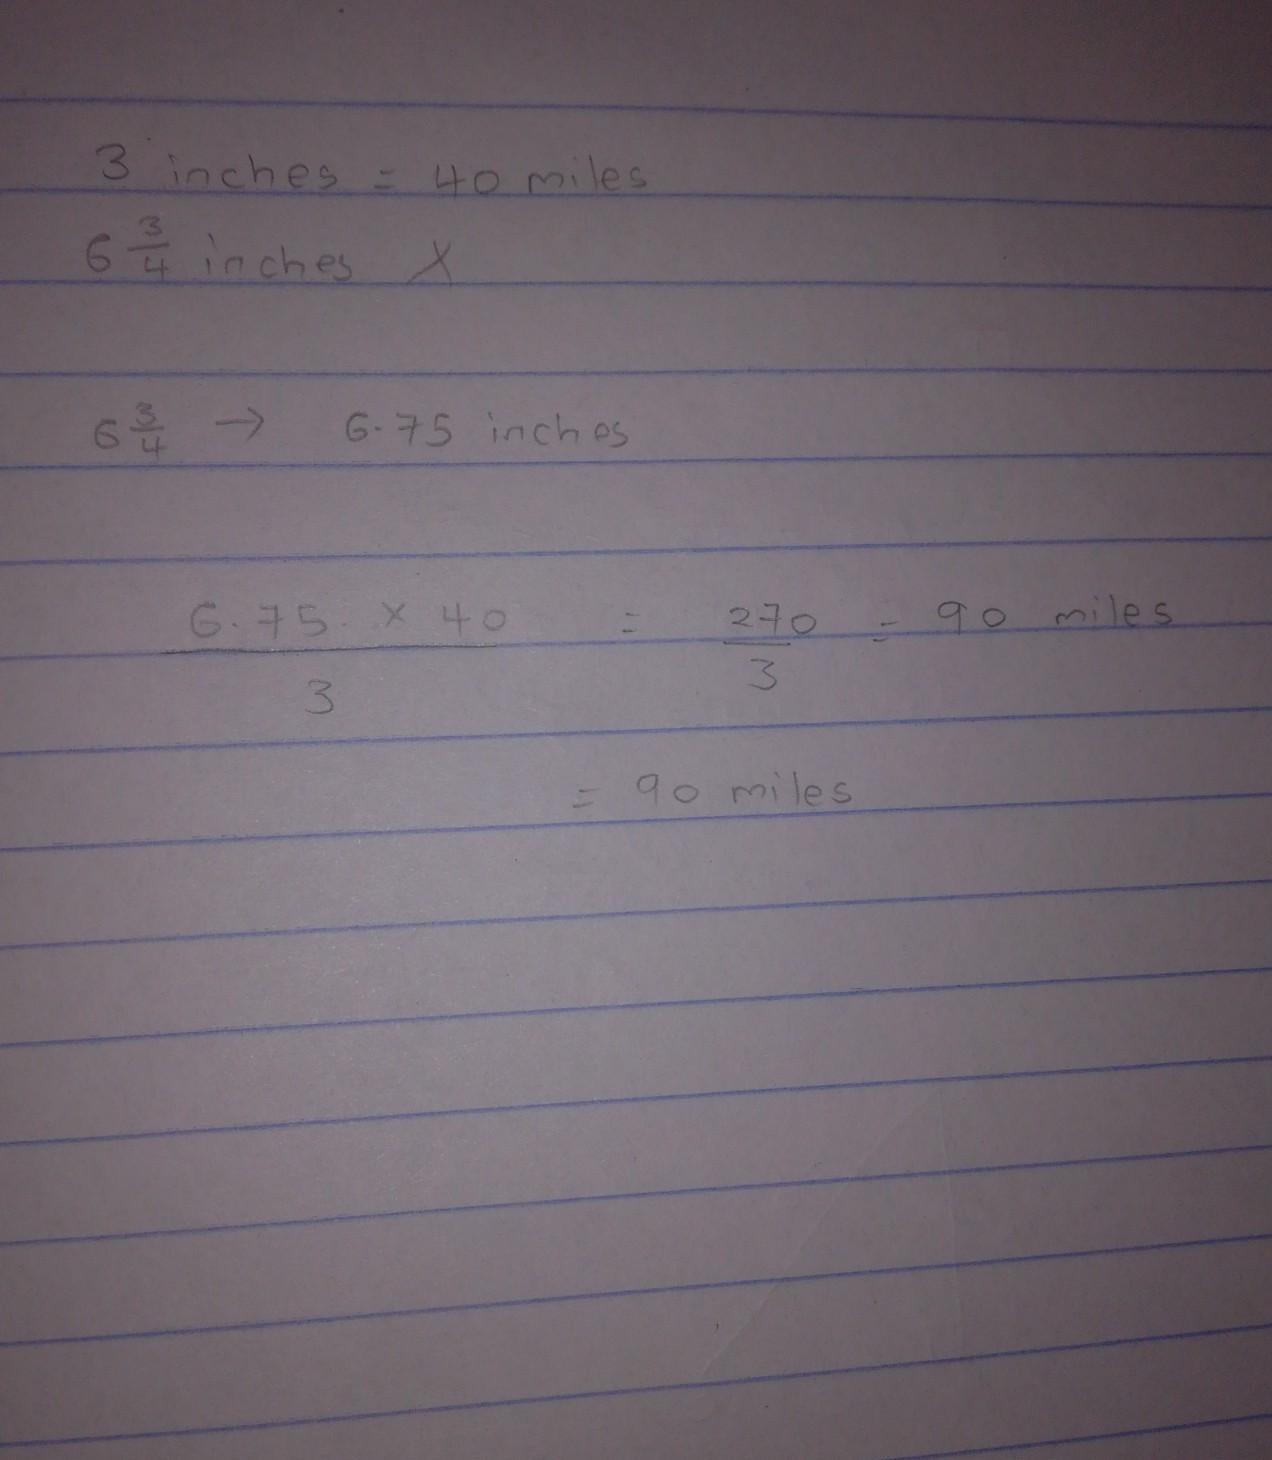 3 inches = 40 miles
6 3/4 inches X
6 3/4 → 6.75 inches
6.75 × 40 / 3 = 270 / 3 = 90 miles
= 90 miles